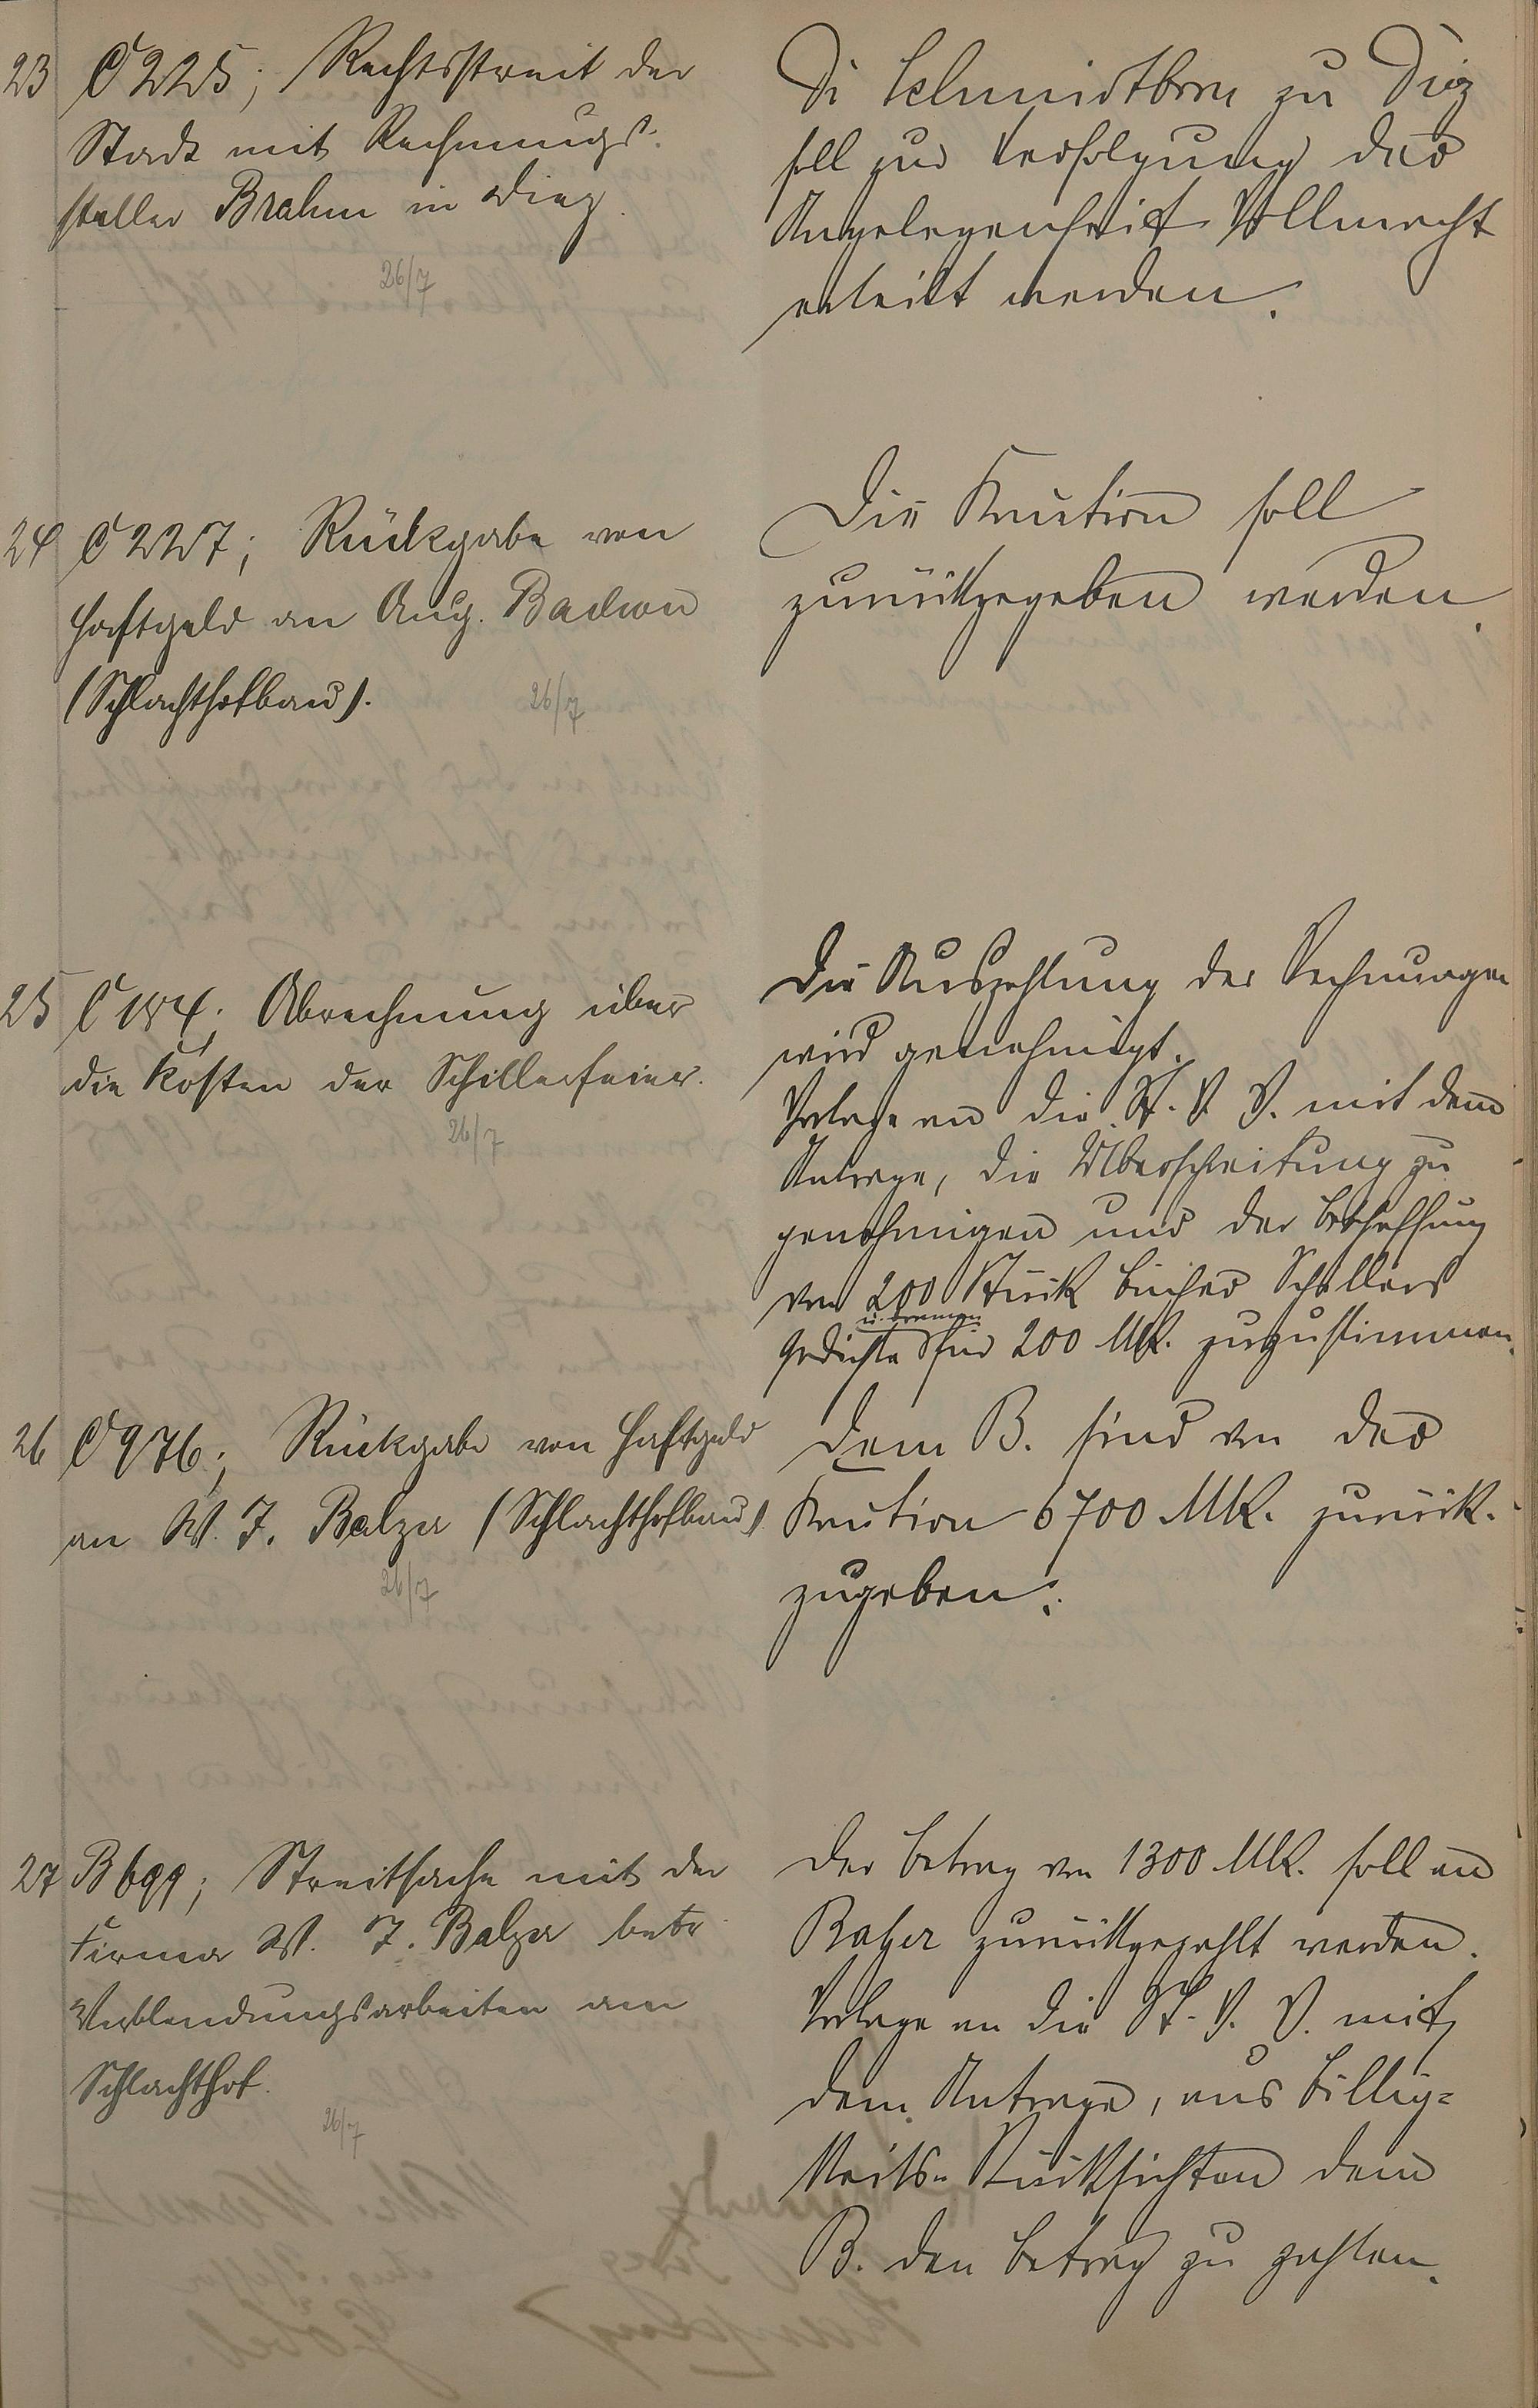 23 C 225; Rechtsstreit der
Stadt mit Rechnungs-
steller Brahm in Diez.
26/7
Schmidtborn zu Diez
soll zur Verfolgung der
Angelegenheit Vollmacht
erteilt werden.
24 C 227; Rückgabe von
Haftgeld an Aug. Badion
(Schlachthofbau).
26/7
Die Kaution soll
zurückgegeben werden.
25 C 184; Abrechnung über
die Kosten der Schillerfeier.
26/7
Die Auszahlung der Rechnungen
wird genehmigt.
Vorlage an die St. V. V. mit dem
Antrage, die Überschreitung zu
genehmigen und der Beschaffung
von 200 Stück Bücher Schillers
u. Dramen
Gedichte für 200 Mk. zuzustimmen.
26 C 976; Rückgabe von Haftgeld
an W. J. Balzer (Schlachthofbau)
26/7
Dem B. sind von der
Kaution 6700 Mk. zurück-
zugeben.
27 B 699; Streitsache mit der
Firma W. J. Balzer betr.
Verblendungsarbeiten am
Schlachthof.
26/7
Der Betrag von 1300 Mk. soll an
Balzer zurückgezahlt werden.
Vorlage an die St. V. V. mit
dem Antrage, aus Billig-
keits-Rücksichten dem
B. den Betrag zu zahlen.